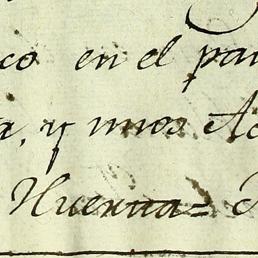 co en el par
a, y unos Ac
Huerva=